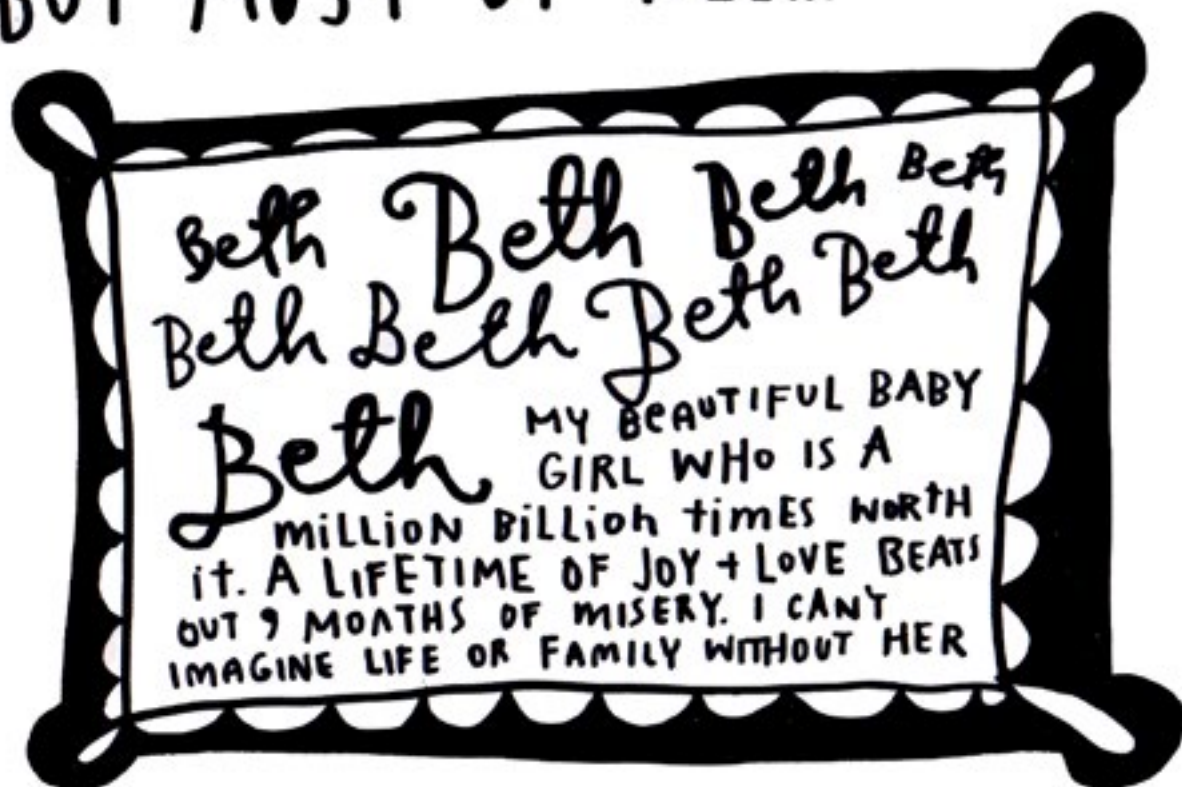 BUT MOST OF ALL...
Beth Beth Beth Beth
Beth Beth Beth Beth
Beth MY BEAUTIFUL BABY
GIRL WHO IS A
MILLION BILLION times WORTH
it. A LIFETIME OF JOY + LOVE BEATS
OUT 9 MONTHS OF MISERY. I CAN'T
IMAGINE LIFE OR FAMILY WITHOUT HER